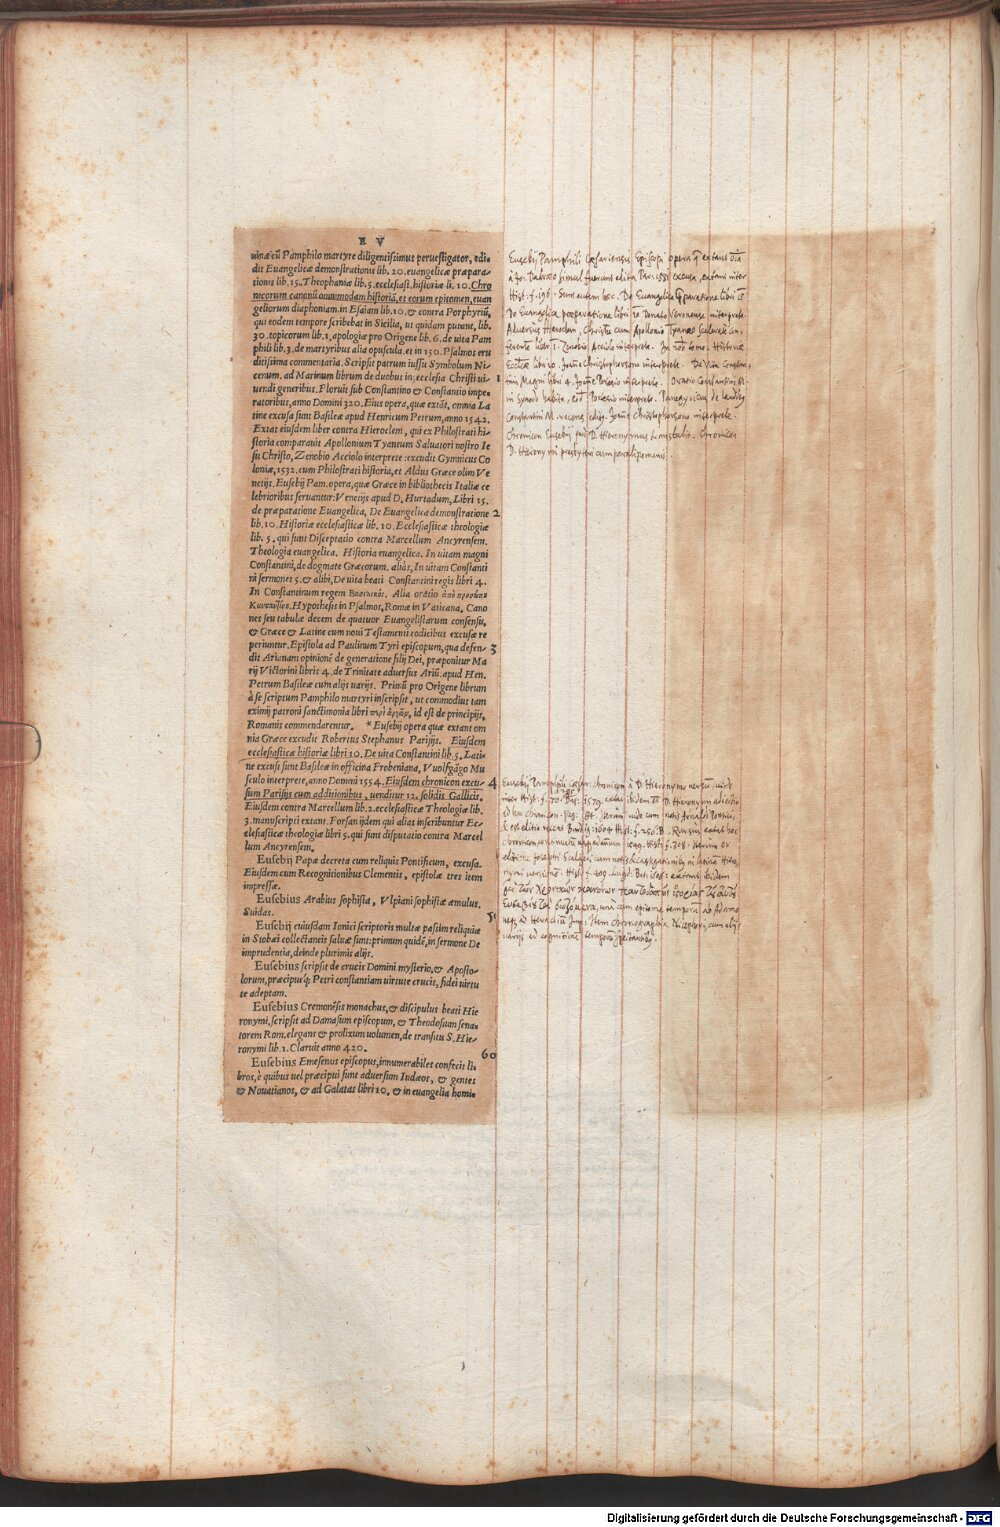 E V
uinæ cũ Pamphilo martyre diligentissimus peruestigator, edi-
dit Euangelicæ demonstrationis lib. 20. euangelicæ præpara-
tionis lib. 15. Theophaniæ lib. 5. ecclesiast. historiæ li. 10. Chro
nicorum canonũ omnimodam historiã, et eorum epitomen, euan
geliorum diaphoniam. in Esaiam lib. 10. & contra Porphyriũ,
qui eodem tempore scribebat in Sicilia, ut quidam putant, lib.
30. topicorum lib. 1. apologiæ pro Origene lib. 6. de uita Pam
phili lib. 3. de martyribus alia opuscula. et in 150. Psalmos eru
ditissima commentaria. Scripsit patrum iussu Symbolum Ni-
cenum. ad Marinum librum de duobus in ecclesia Christi ui- 1
uendi generibus. Floruit sub Constantino & Constantio impe-
ratoribus, anno Domini 320. Eius opera, quæ extãt, omnia La
tine excusa sunt Basileæ apud Henricum Petrum, anno 1542.
Extat eiusdem liber contra Hieroclem, qui ex Philostrati hi-
storia comparauit Apollonium Tyaneum Saluatori nostro Ie
su Christo, Zenobio Acciolo interprete: excudit Gymnicus Co
loniæ, 1532. cum Philostrati historia, et Aldus Græce olim Ve
netijs. Eusebij Pam. opera, quæ Græce in bibliothecis Italiæ ce
lebrioribus seruantur: Venetijs apud D. Hurtadum, Libri 15.
de præparatione Euangelica, De Euangelica demonstratione 2
lib. 10. Historiæ ecclesiasticæ lib. 10. Ecclesiasticæ theologiæ
lib. 5. qui sunt Disceptatio contra Marcellum Ancyrensem.
Theologia euangelica. Historia euangelica. In uitam magni
Constantini, de dogmate Græcorum. aliàs, In uitam Constanti
ni sermones 5. & alibi, De uita beati Constantini regis libri 4.
In Constantinum regem Βασιλικός. Alia oratio ἀπὸ προσώπου
Hypothesis in Psalmos, Romæ in Vaticana. Cano
nes seu tabulæ decem de quatuor Euangelistarum consensu,
& Græce & Latine cum noui Testamenti codicibus excusæ re
periuntur. Epistola ad Paulinum Tyri episcopum, qua defen- 3
dit Arianam opinionẽ de generatione filij Dei, præponitur Ma
rij Victorini libris 4. de Trinitate aduersus Ariũ. apud Hen.
Petrum Basileæ cum alijs uarijs. Primũ pro Origene librum
à se scriptum Pamphilo martyri inscripsit, ut commodius tam
eximij patroni sanctimonia libri περὶ ἀρχῶν, id est de principijs,
Romanis commendarentur. * Eusebij opera quæ extant om
nia Græce excudit Robertus Stephanus Parisijs. Eiusdem
ecclesiasticæ historiæ libri 10. De uita Constantini lib. 5. Lati-
ne excusi sunt Basileæ in officina Frobeniana, Vuolfgãgo Mu
sculo interprete, anno Domini 1554. Eiusdem chronicon excu- 4
sum Parisijs cum additionibus, uenditur 12. solidis Gallicis.
Eiusdem contra Marcellum lib. 2. ecclesiasticæ Theologiæ lib.
3. manuscripti extant. Forsan ijdem qui alias inscribuntur Ec-
clesiasticæ theologiæ libri 5. qui sunt disputatio contra Marcel
lum Ancyrensem.
Eusebij Papæ decreta cum reliquis Pontificum, excusa.
Eiusdem cum Recognitionibus Clementis, epistolæ tres item
impressæ.
Eusebius Arabius sophista, Vlpiani sophistæ æmulus.
Suidas. 5
Eusebij cuiusdam Ionici scriptoris multæ passim reliquiæ
in Stobæi collectaneis saluæ sunt: primum quidẽ, in sermone De
imprudentia, deinde plurimis alijs.
Eusebius scripsit de crucis Domini mysterio, & Aposto-
lorum, præcipueq; Petri constantiam uirtute crucis, fidei uirtu
te adeptam.
Eusebius Cremonẽsis monachus, & discipulus beati Hie
ronymi, scripsit ad Damasum episcopum, & Theodosium sena-
torem Rom. elegans & prolixum uolumen, de transitu S. Hie-
ronymi lib. 1. Claruit anno 420. 60
Eusebius Emesenus episcopus, innumerabiles confecit li-
bros, è quibus uel præcipui sunt aduersum Iudæos, & gentes
& Nouatianos, & ad Galatas libri 10. & in euangelia homi-
Eusebij Pamphili Cæsariensis Episcopi opera
simul edita Par. 1581 excusa, extant inter
Hist. f. 196. Sunt autem hæc. De Euangelica præparatione libri 15
De Euangelica præparatione libri Donato Veronense interprete.
Aduersus Hieroclem, Christũ cum Apollonio Tyanæo
Zenobio Acciolo interprete. Historiæ
libri 10. Joañe Christophorsono interprete. De Vita Constan-
tini Magni libri 4. Joañe interprete. Oratio Constantini M.
in Synodo habita, interprete. Panegyricus de laudib.
Constantini M. Joañe Christophorsono interprete.
Chronicon Eusebij D. Hieronymus Chronicon
D. Hieronymi presbyteri cum paralipomenis.
Eusebij Pamphili Cæsar. chronicon à D. Hieronymo uersum uide
inter Hist. f. 70. Bas. 1529. D. Hieronymi
ad hoc chronicon cum notis Arnaldi Pontaci,
1604 Hist. f. 256. B.
Hist. f. 308.
Josephi Scaligeri cum notis & castigationibus in latinã Hiero
nymi uersionem. Hist. f. 409. Lugd. Bat. 1606. extant ibidem
cum epitome temporum ab Adamo
usq; ad Heraclium Imp. Item chronographia Nicephori, cum alijs
uarijs ad cognitionem temporũ spectantibus.
Digitalisierung gefördert durch die Deutsche Forschungsgemeinschaft - DFG